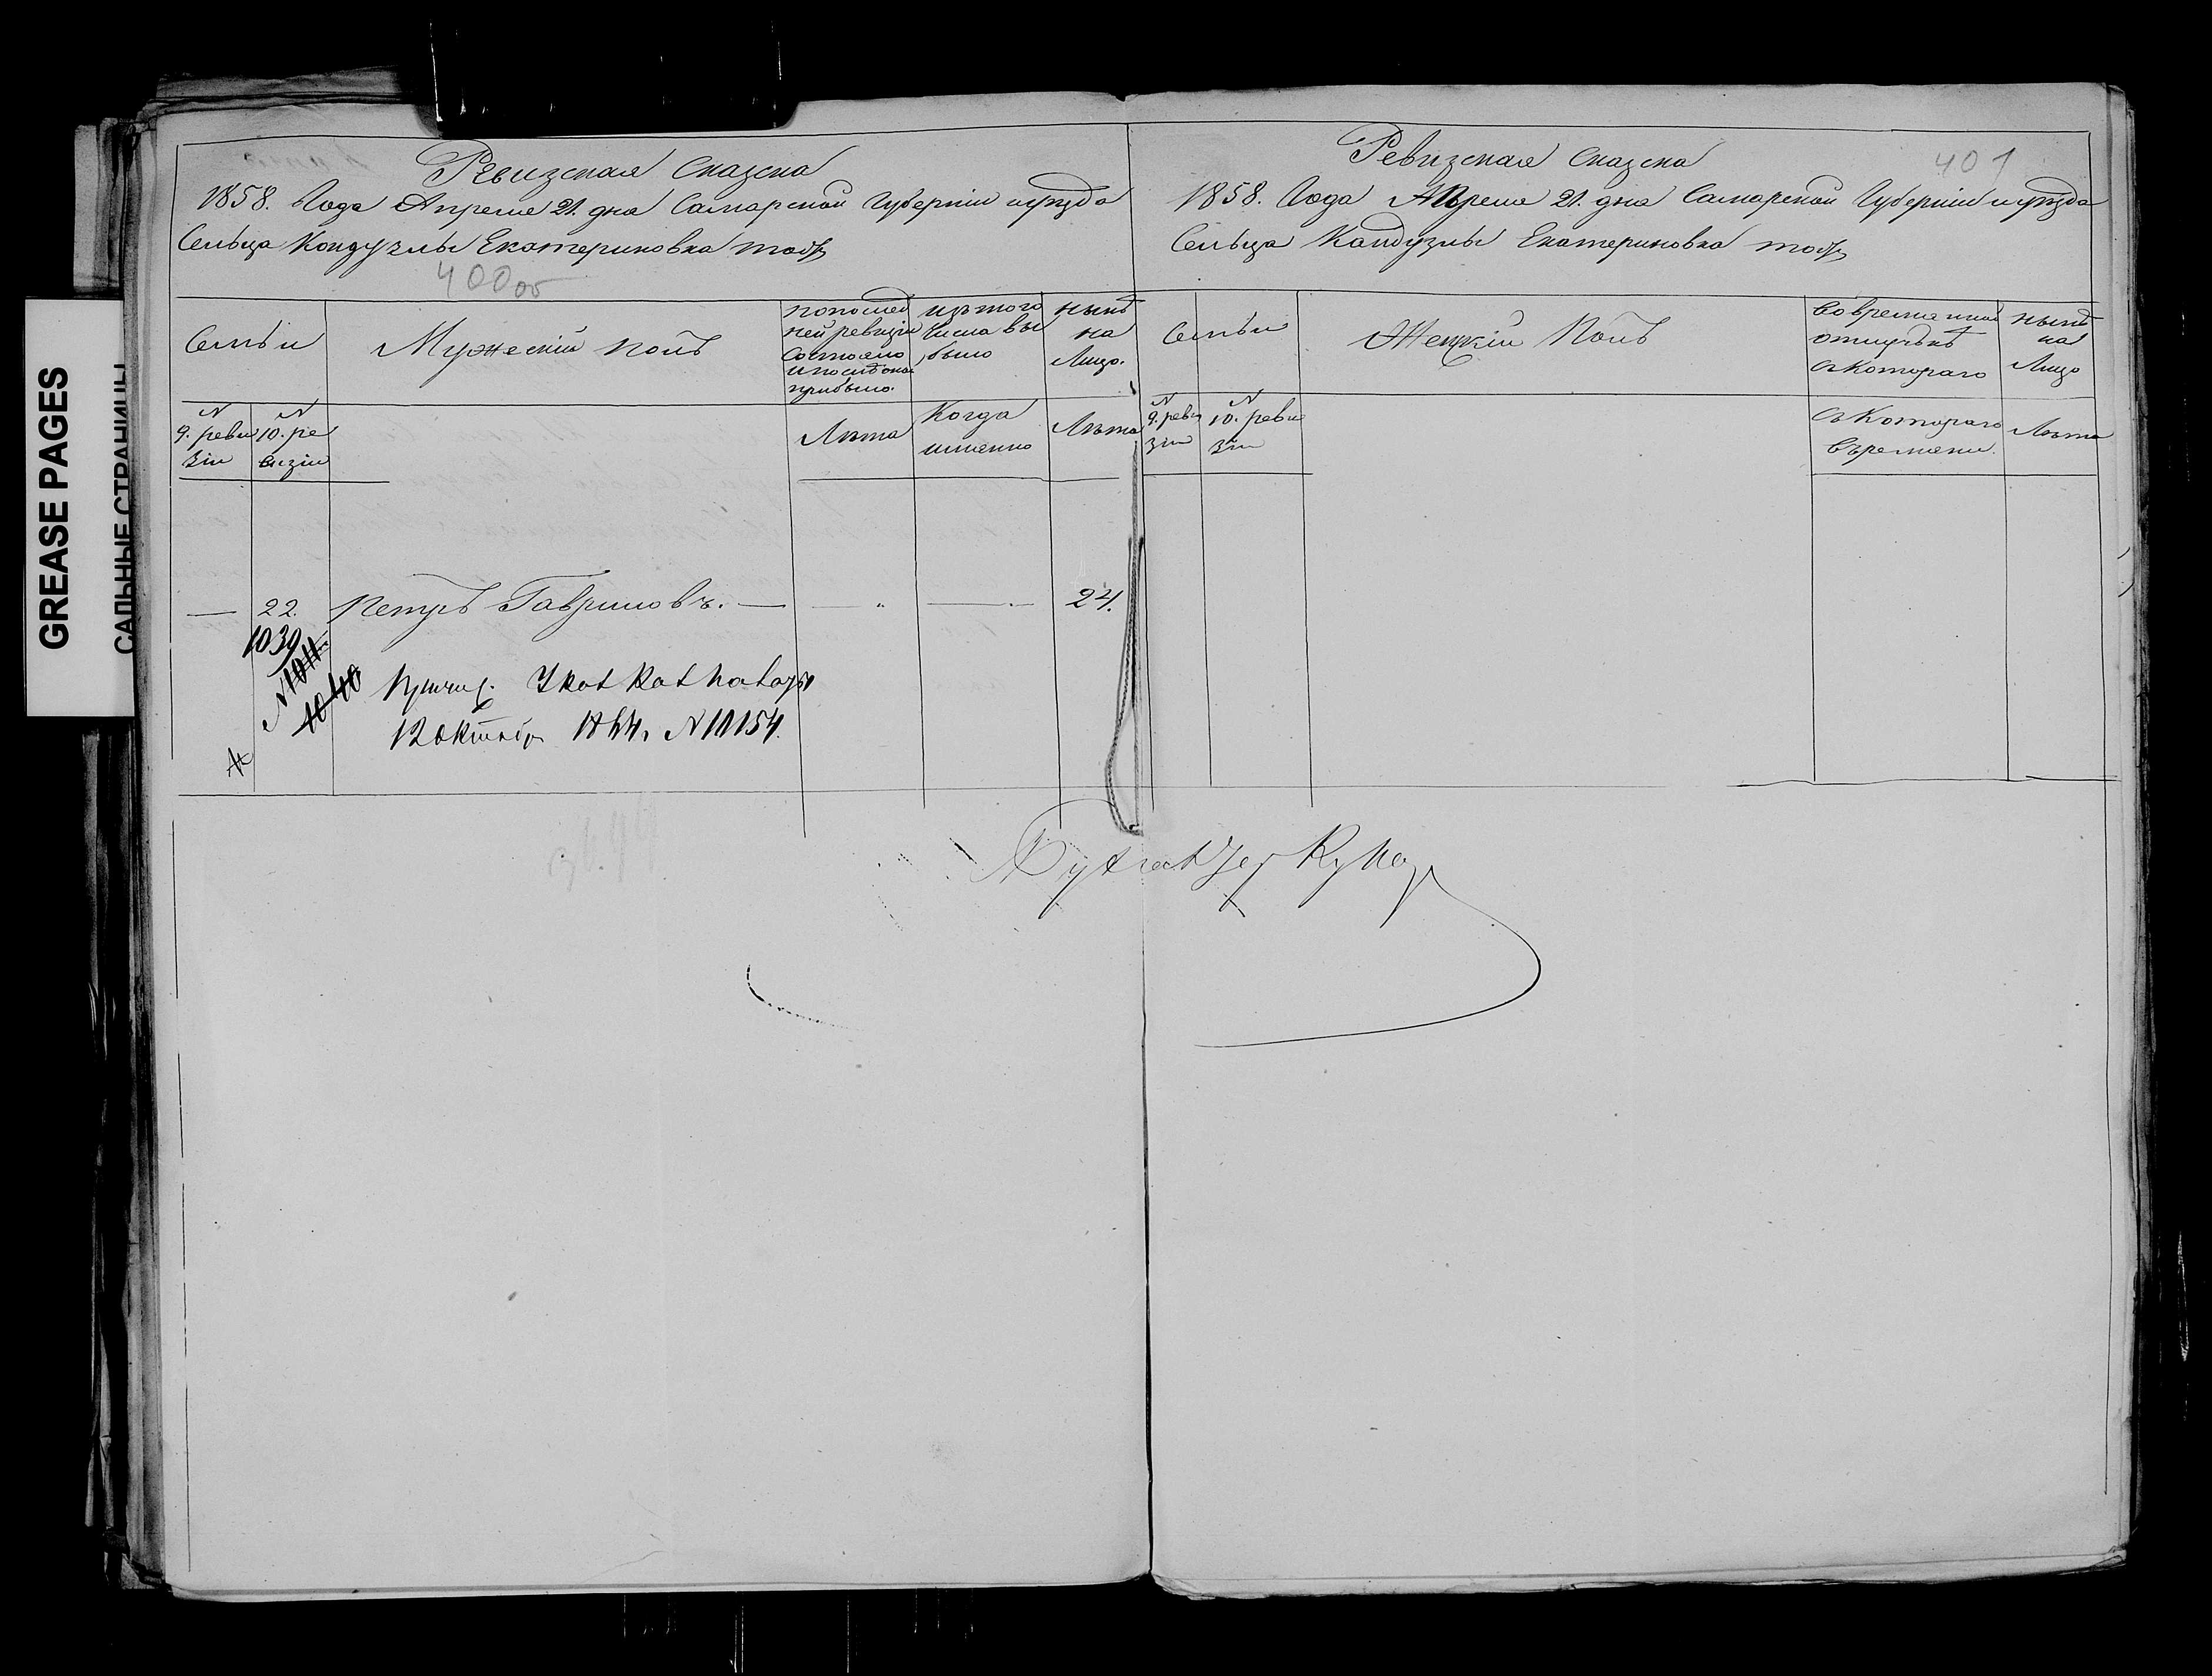 GREASE PAGES
САЛЬНЫЕ СТРАНИЦЫ
Ревизская Сказска
1858. Года Апреля 21. дна Самарской Губернiи и уѣзда
Сельца Кондузлы Екатериновка тожъ
400 об
Семьи
Мужескiй полъ
по послед
ней ревизiи
состояло
и после оной
прибыло.
изъ того
числа вы
было
нынѣ
на
Лицо.
N
9. реви
зiи
N
10. ре
визiи
Лѣта
Когда
именно
Лѣта
— 22. Петръ Гавриловъ. — — " — 24.
1039
N 1011
1040
Причис.
12 октября 1864, N 10154.
Ревизская Сказска
401
1858. Года Апреля 21. дна Самарской Губернiи и уѣзда
Сельца Кандузлы Екатериновка тожъ
Семьи
Женскiй Полъ
Во временной
отлучкѣ
съ котораго
нынѣ
на
Лицо
N
9. реви
зiи
N
10. реви
зiи
съ Котораго
времени.
Лѣта